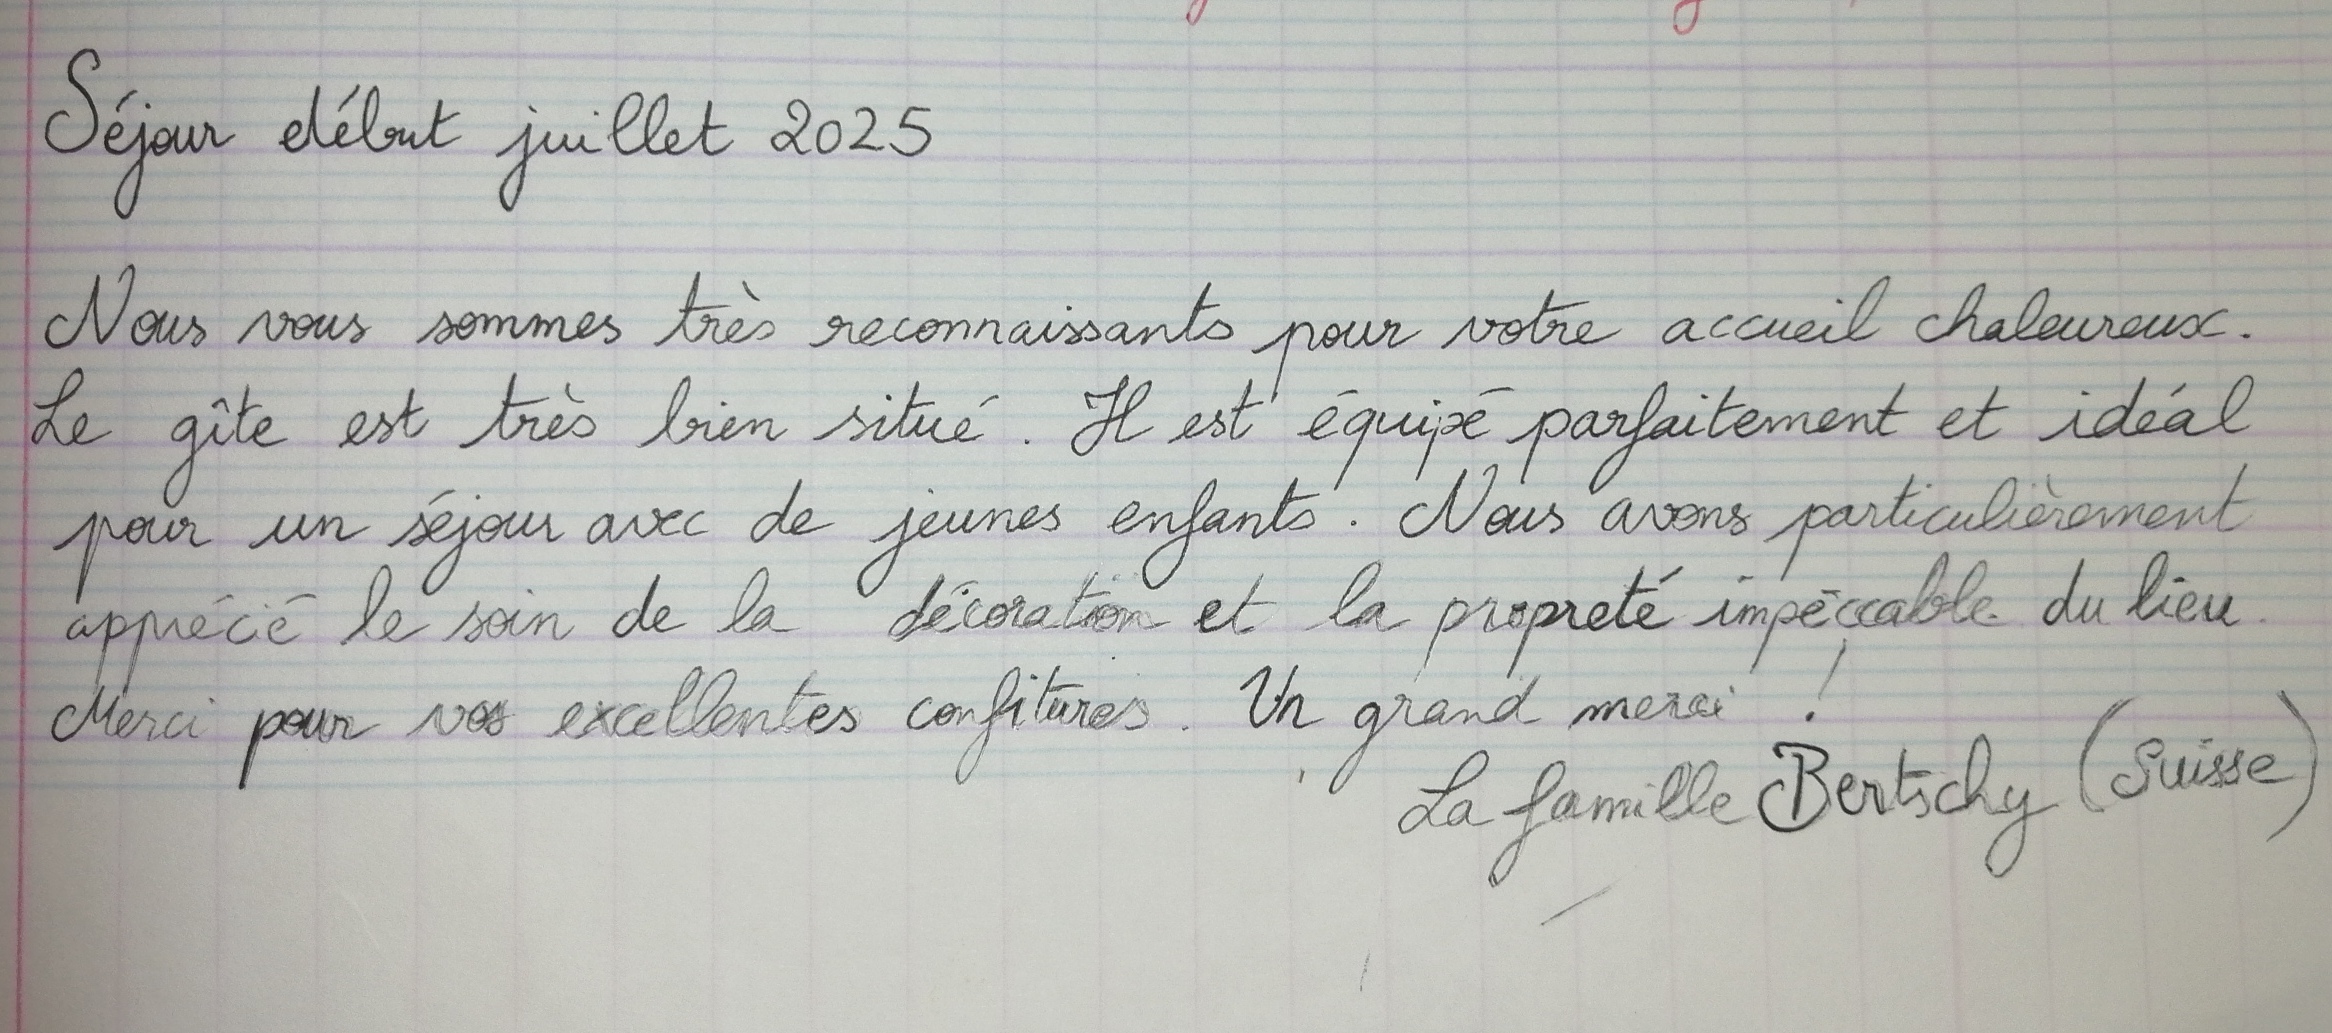 Séjour début juillet 2025
Nous vous sommes très reconnaissants pour votre accueil chaleureux.
Le gîte est très bien situé. Il est équipé parfaitement et idéal
pour un séjour avec de jeunes enfants. Nous avons particulièrement
apprécié le soin de la décoration et la propreté impéccable du lieu.
Merci pour vos excellentes confitures. Un grand merci !
La famille Bertschy (Suisse)